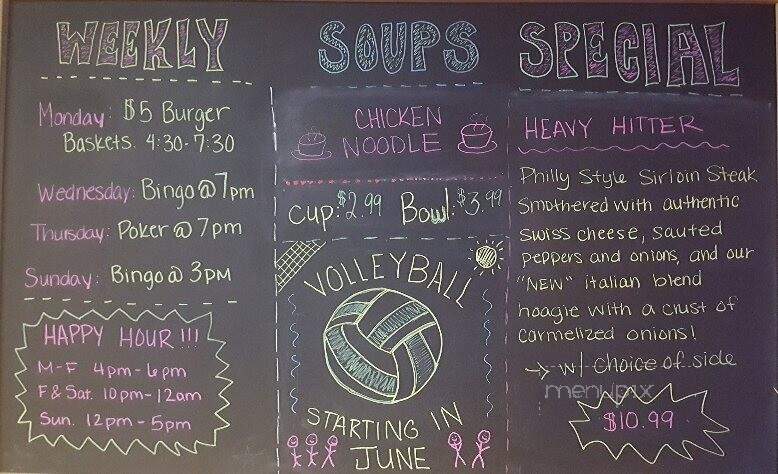 WEEKLY
Monday: $5 Burger
Baskets. 4:30-7:30
Wednesday: Bingo @ 7pm
Thursday: Poker @ 7pm
Sunday: Bingo @ 3pm
HAPPY HOUR !!!
M-F 4pm-6pm
F & Sat. 10pm-12am
Sun. 12pm-5pm
SOUPS
CHICKEN
NOODLE
Cup: $2.99 Bowl: $3.99
VOLLEYBALL
STARTING IN
JUNE
SPECIAL
HEAVY HITTER
Philly Style Sirloin Steak
Smothered with authentic
swiss cheese, sauted
peppers and onions, and our
"NEW" italian blend
hoagie with a crust of
carmelized onions!
→ w/ choice of side
menupix
$10.99